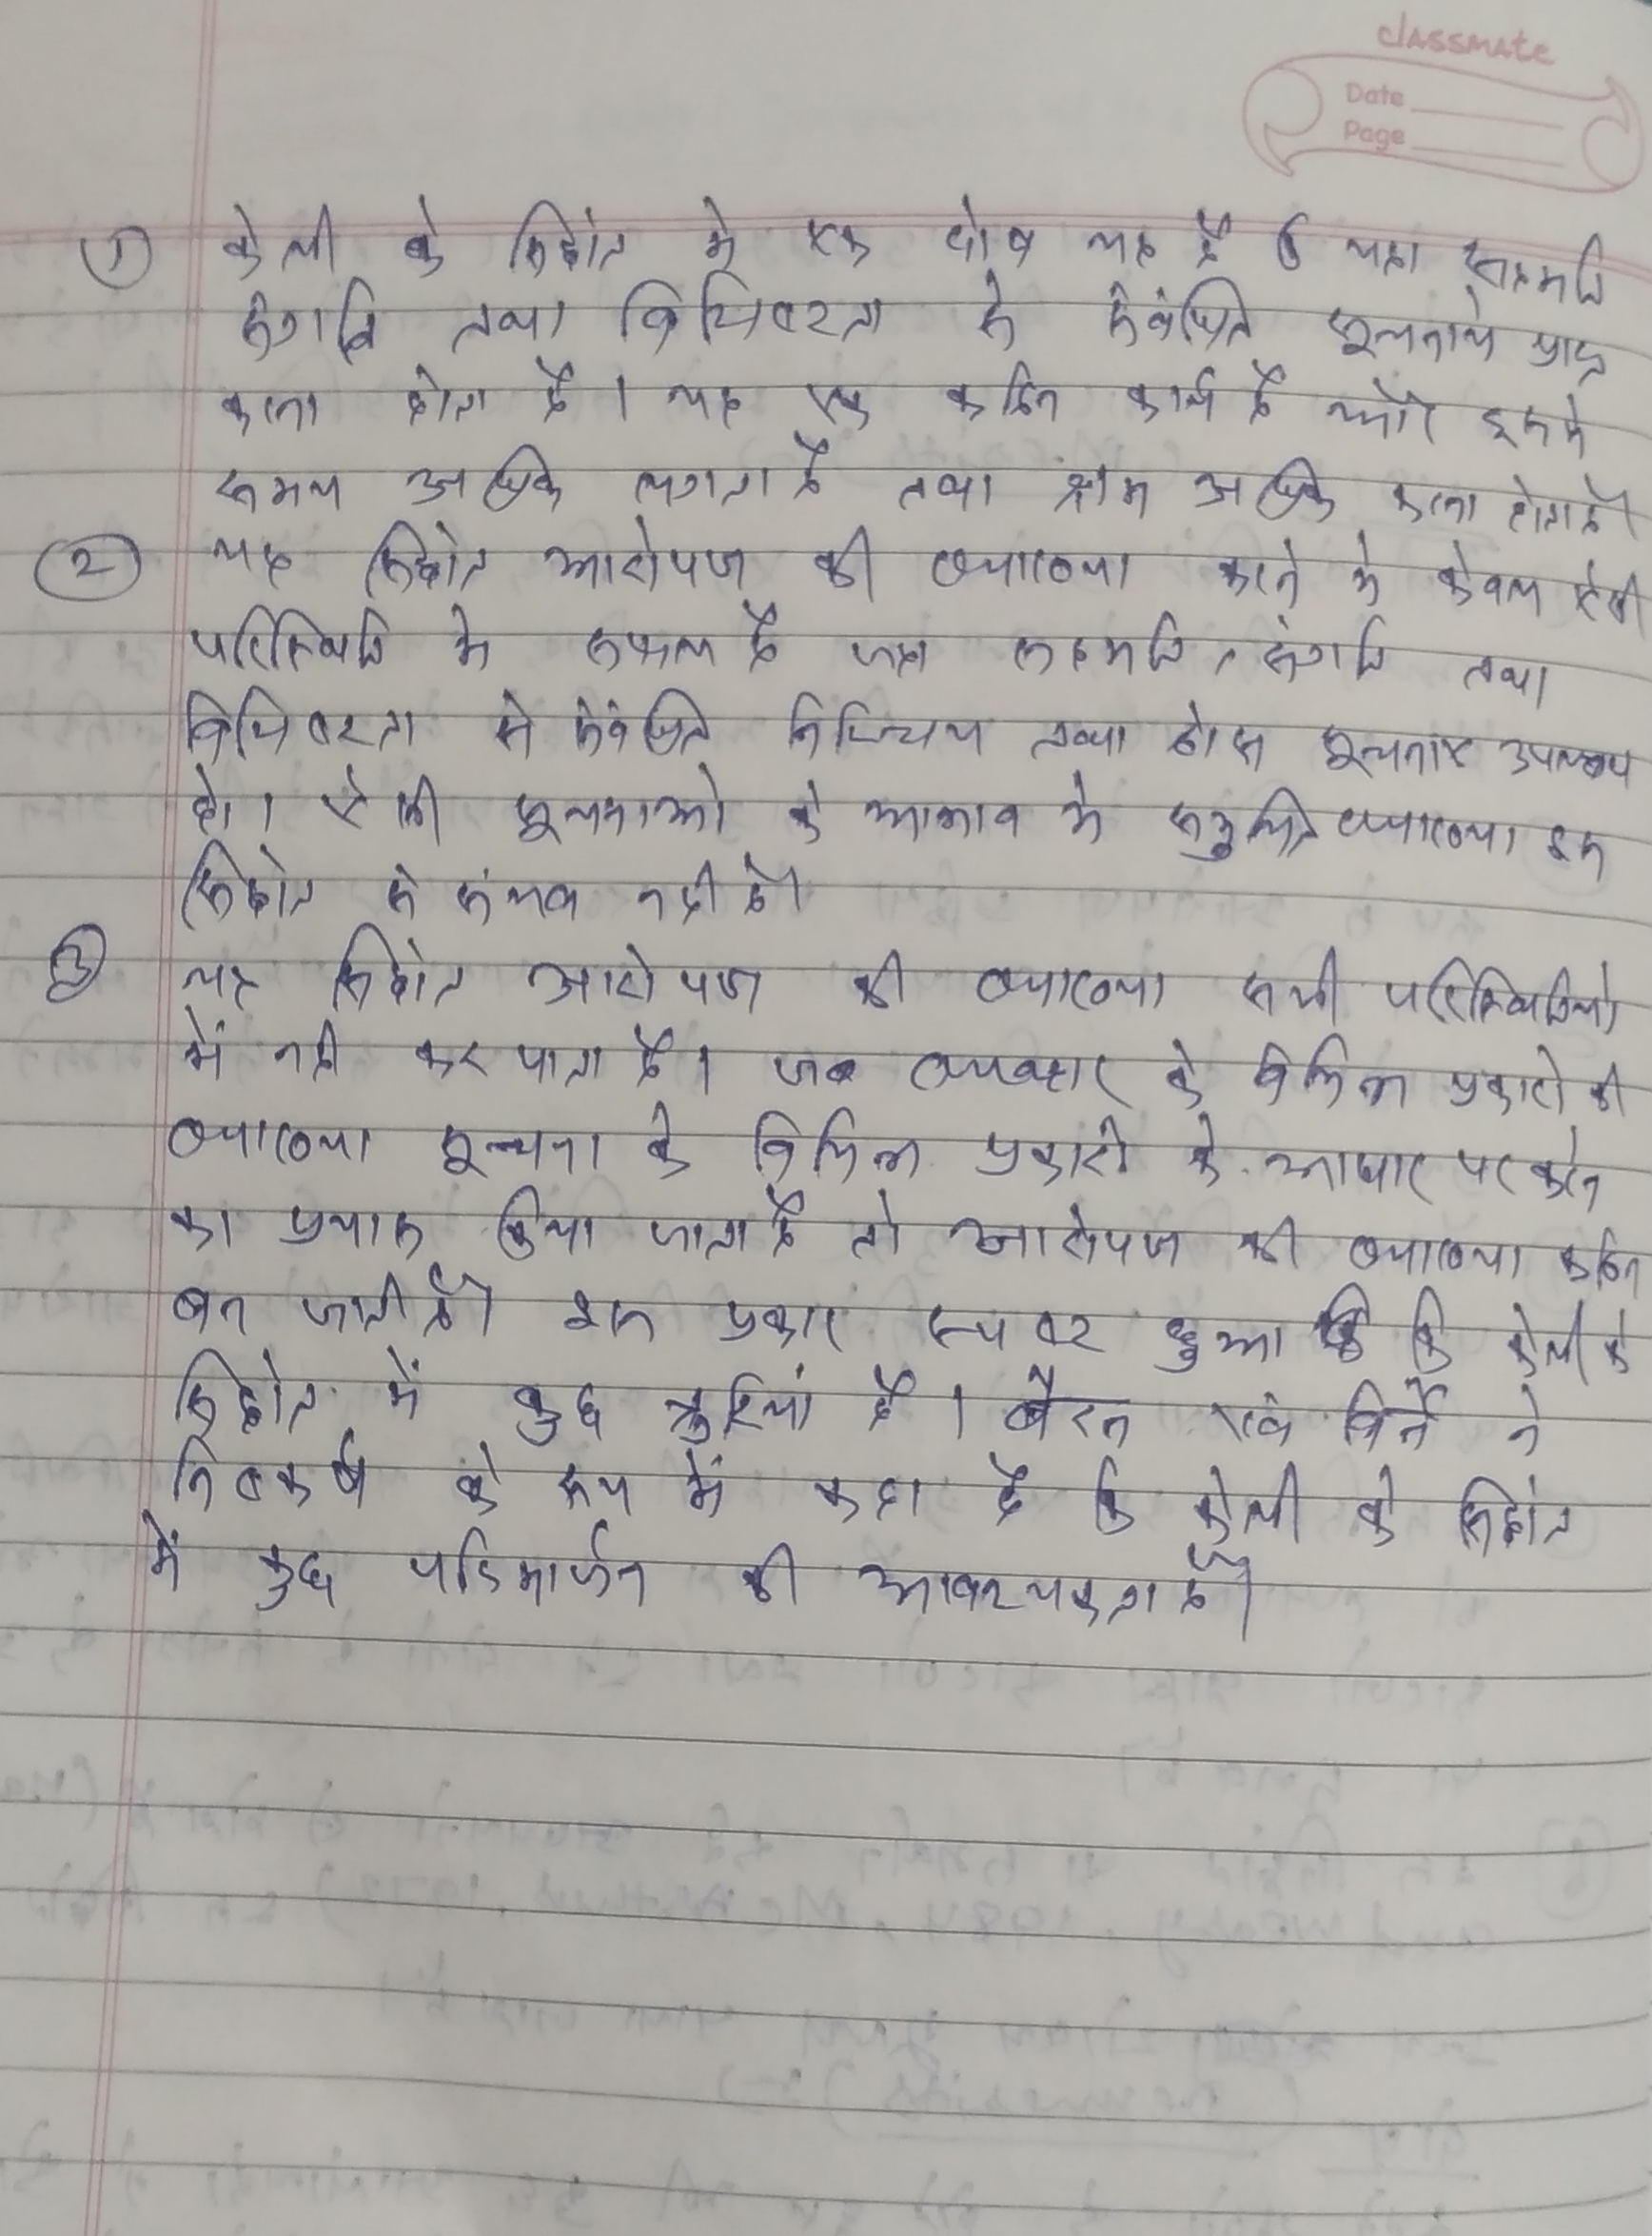 classmate
Date
Page
① केली के सिद्धांत मे एक दोष यह है कि यहा सहमति
संगति तथा विशिष्टता से संबंधित सूचनाये प्राप्त
करना होता है । यह एक कठिन कार्य है और इसमे
समय अधिक लगता है तथा श्रम अधिक करना होता है।
② यह सिद्धांत आरोपण की व्याख्या करने मे केवल ऐसी
परिस्थिति मे सफल है जहा सहमति, संगति तथा
विशिष्टता से संबंधित निश्चिय तथा ठोस सूचनाए उपलब्ध
हो । ऐसी सूचनाओ के आभाव मे समुचित व्याख्या इस
सिद्धांत से संभव नही है।
③ यह सिद्धांत आरोपण की व्याख्या सभी परिस्थितियो
में नही कर पाता है । जब व्यवहार के विभिन्न प्रकारो की
व्याख्या सूचना के विभिन्न प्रकारो के आधार पर करने
का प्रयास किया जाता है तो आरोपण की व्याख्या कठिन
बन जाती है। इस प्रकार स्पष्ट हुआ कि कि केली के
सिद्धांत में कुछ त्रुटियां है । बैरन एवं बिर्ने ने
निष्कर्ष के रूप में कहा है कि केली के सिद्धांत
में कुछ परिमार्जन की आवश्यकता है।